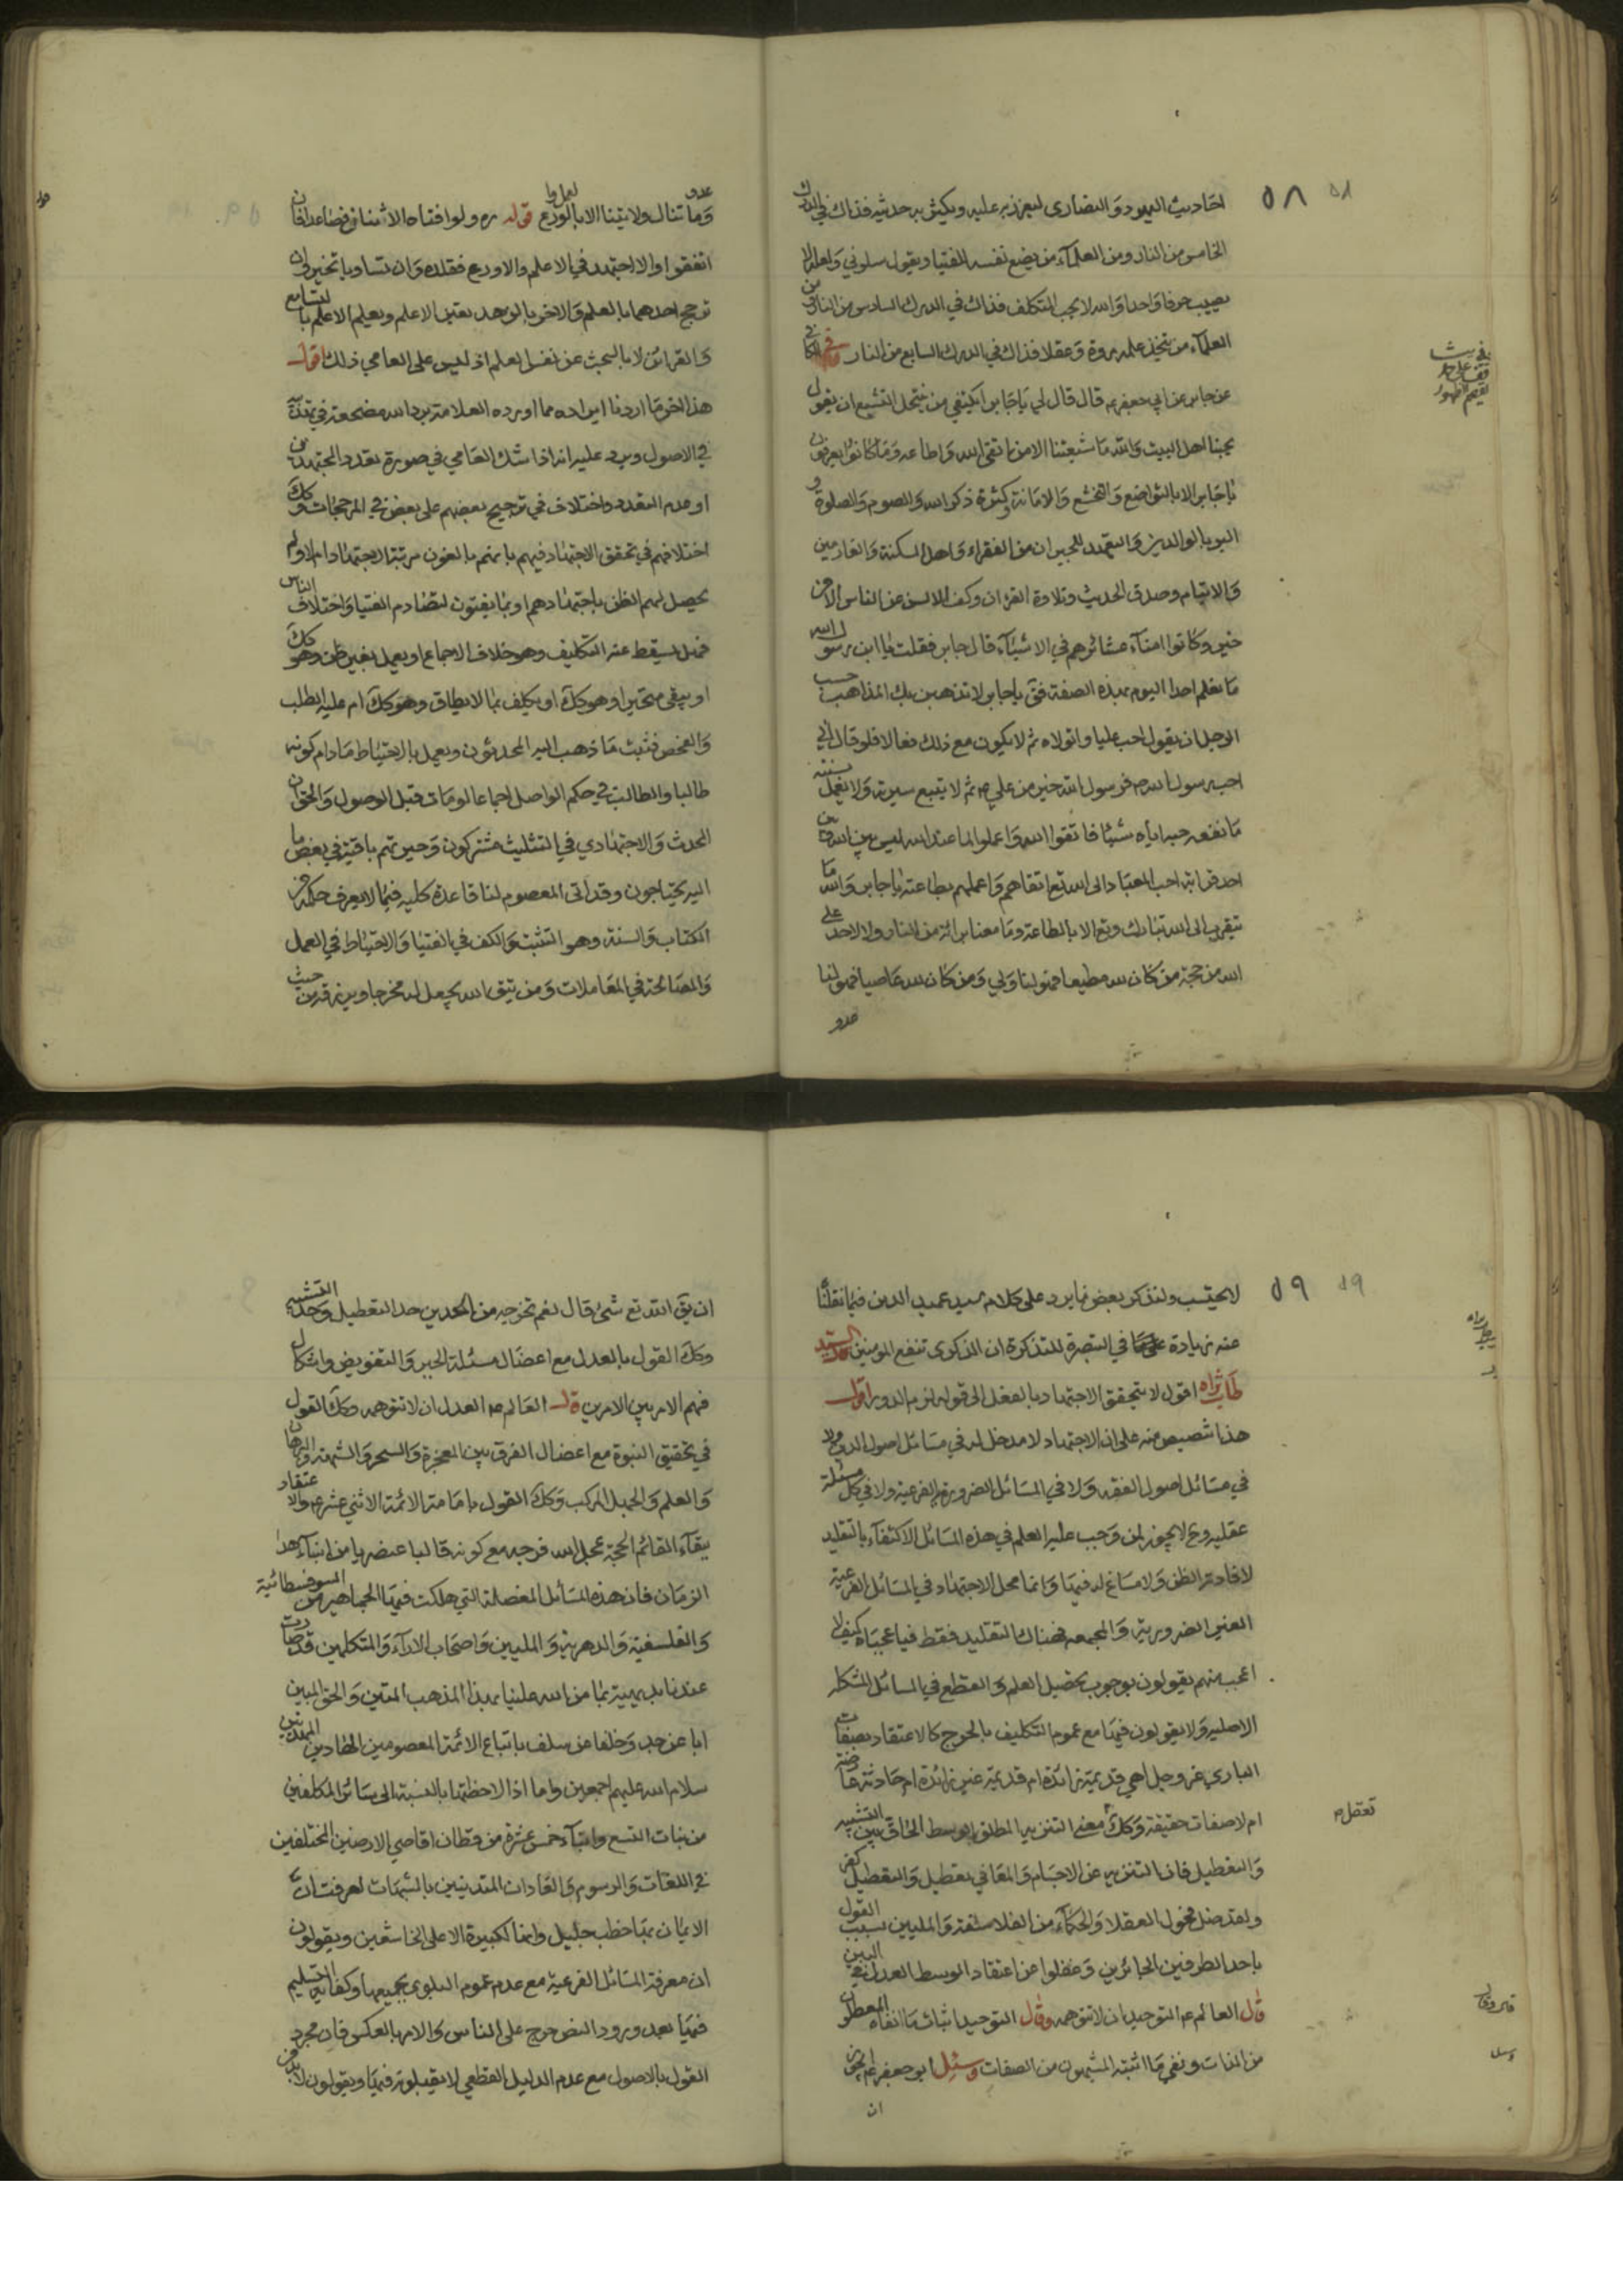 احاديث اليهود والنصارى ليعزز به عليه ويكثر به حديثه فذاك في الدرك
الخامس من النار ومن العلماء من يضع نفسه للفتيا ويقول سلوني ولعله لا
يصيب حرفا واحدا والله لا يحب المتكلف فذاك في الدرك السادس من النار ومن
العلماء من يتخذ علمه مروة وعقلا فذاك في الدرك السابع من النار وفي الكافي
عن جابر عن ابي جعفر ع قال قال لي يا جابر ايكتفي من ينتحل التشيع ان يقول
بحبنا اهل البيت والله ما شيعتنا الا من اتقى الله واطاعه وما كانوا يعرفون
يا جابر الا بالتواضع والتخشع والامانة وكثرة ذكر الله والصوم والصلوة و
البر بالوالدين والتعهد للجيران من الفقراء واهل المسكنة والغارمين
والايتام وصدق الحديث وتلاوة القران وكف الالسن عن الناس الا من
خير وكانوا امناء عشائرهم في الاشياء قال جابر فقلت يا ابن رسول الله
ما نعلم احدا اليوم بهذه الصفة فق يا جابر لا تذهبن بك المذاهب حسب
الرجل ان يقول احب عليا واتولاه ثم لا يكون مع ذلك فعالا فلو قال اني
احب رسول الله ص فرسول الله خير من علي ع ثم لا يتبع سيرته ولا يعمل بسنته
ما نفعه حبه اياه شيئا فاتقوا الله واعملوا لما عند الله ليس بين الله وبين
احد قرابة احب العباد الى الله تع اتقاهم واعملهم بطاعته يا جابر والله ما
يتقرب الى الله تبارك وتع الا بالطاعة وما معنا برائة من النار ولا لاحد على
الله من حجة من كان لله مطيعا فهو لنا ولي ومن كان لله عاصيا فهو لنا
عدو
٥٨
عدو
وما تنال ولايتنا الا بالورع قوله ره ولو افتاه الاثنان فصاعدا فان
اتفقوا والا اجتهد في الاعلم والاورع فقلده وان تساويا تخير وان
ترجح احدهما بالعلم والاخر بالزهد تعين الاعلم ويعلم الاعلم بالتسامع
والقرائن لا بالبحث عن نفس العلم اذ ليس على العامي ذلك اقول
هذا اخر ما اردنا ايراده مما اورده العلامة برد الله مضجعه في
في الاصول ويرد عليه انه اذا شك العامي في صورة تعدد المجتهدين
او عدم التعدد واختلاف في ترجيح بعضهم على بعض في المرجحات وكك
اختلافهم في تحقق الاجتهاد فيهم بانهم بالغون مرتبة الاجتهاد ام لا ولم
يحصل لهم الظن باجتهادهم او بما يفتون لتصادم الفتيا واختلاف الناس
فهل يسقط عنه التكليف وهو خلاف الاجماع او يعمل بغير ظن وهو كك
او يبقى متحيرا وهو كك او يكلف بما لا يطاق وهو كك ام عليه الطلب
والفحص فثبت ما ذهب اليه المحدثون ويعمل بالاحتياط ما دام كونه
طالبا والطالب في حكم الواصل اجماعا لو مات قبل الوصول والحق ان
المحدث والاجتهادي في التثليث مشتركون وحيرتهم باقية في بعض ما
اليه يحتاجون وقد اتى المعصوم لنا قاعدة كلية فيما لا يعرف حكمه من
الكتاب والسنة وهو التثبت والكف في الفتيا والاحتياط في العمل
والمصالحة في المعاملات ومن يتق الله يجعل له مخرجا ويرزقه من حيث
٥٩
لا يحتسب ولنذكر بعض ما يرد على كلام سيد عميد الدين فيما نقلنا
عنه زيادة على ما في التبصرة للتذكرة ان الذكرى تنفع المومنين قال السيد
طاب ثراه اقول لا يتحقق الاجتهاد بالفعل الى قوله لزم الدور اقول
هذا تنصيص منه على ان الاجتهاد لا مدخل له في مسائل اصول الدين ولا
في مسائل اصول الفقه ولا في المسائل الضرورية الفرعية ولا في كل مسئلة
عقلية وح لا يجوز لمن وجب عليه العلم في هذه المسائل الاكتفاء بالتقليد
لافادته الظن ولا مساغ له فيها وانما محل الاجتهاد في المسائل الفرعية
الغير الضرورية والمجمعه فهناك التقليد فقط فيا عجباه كيف لا
اعجب منهم يقولون بوجوب تحصيل العلم والقطع في المسائل المشكله
الاصلية ولا يقولون فيها مع عموم التكليف بالحرج كالاعتقاد بصفات
الباري عز وجل اهي قديمة زائدة ام قديمة غير زائدة ام حادثة عارضة
ام لا صفات حقيقة وكك معنى التنزيه المطلق الوسط الحاق بين التشبيه
والتعطيل فان التنزيه عن الاجسام والمعاني تعطيل والتعطيل كفر
ولقد ضل فحول العقلا والحكماء من الفلاسفة والمليين بسبب القول
باحد الطرفين الجائرين وغفلوا عن اعتقاد الوسط العدل
قال العالم ع التوحيد ان لا تتوهمه وقال التوحيد اثبات ما انفاه المعطلون
من الذات ونفي ما اثبته المشبهون من الصفات وسئل ابو جعفر ع ايجوز
ان
تعقل
ان يق الله تع شئ قال نعم تخرجه من الحدين حد التعطيل وحد التشبيه
وكك القول بالعدل مع اعضال مسئلة الجبر والتفويض واشكال
فهم الامر بين الامرين قال العالم ع العدل ان لا تتهمه وكك القول
في تحقيق النبوة مع اعضال الفرق بين المعجزة والسحر والشبهة والبرهان
والعلم والجهل المركب وكك القول بامامة الائمة الاثني عشر ع والاعتقاد
ببقاء القائم الحجة عجل الله فرجه مع كونه قالبا عنصريا من ابناء هذا
الزمان فان هذه المسائل المعضلة التي هلكت فيها الجماهير من السوفسطائية
والفلسفية والدهرية والمليين واصحاب الاراء والمتكلمين قد صارت
عندنا بديهية بما من الله علينا بهذا المذهب المتين والحق المبين
ابا عن جد وخلفا عن سلف باتباع الائمة المعصومين الهادين المهديين
سلام الله عليهم اجمعين واما اذا لاحظتها بالنسبة الى سائر المكلفين
من بنات التسع وابناء خمس عشرة من قطان اقاصي الارضين المختلفين
في اللغات والرسوم والعادات المتدينين بالشبهات لعرفت ان
الايمان بها خطب جليل وانها لكبيرة الا على الخاشعين ويقولون
ان معرفة المسائل الفرعية مع عدم عموم البلوى بجميعها وكفاية التسليم
فيها بعد ورود النص حرج على الناس والامر بالعكس فان مجرد
القول بالاصول مع عدم الدليل القطعي لا يقبلونه فيها ويقولون لابد من